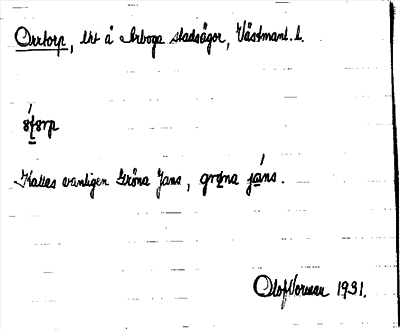 Orrtorp, lht å Arboga stadsägor, Västmanl. l.
Kallas vanligen Gröna Jans, grøna ja̲ns.
Olof Vorman 1931.